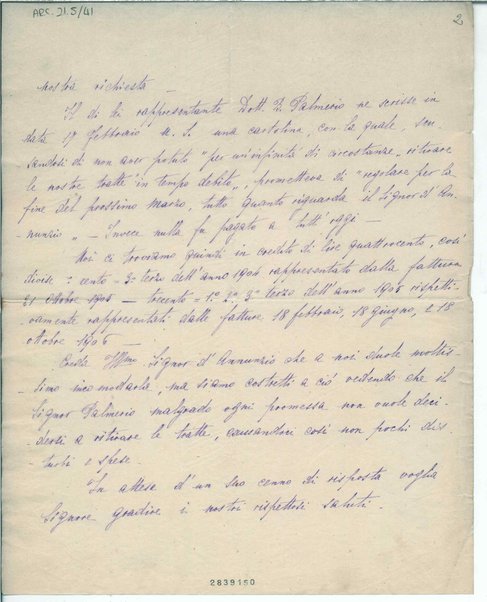 ARC. 21.5/41
2
nostra richiesta —
Il di lei rappresentante Dott. P. Palmerio ne scrisse in
data 17 febbraio u. s. una cartolina, con la quale, scu-
sandosi di non aver potuto "per un'infinità di circostanze" ritirare
le nostre tratte in tempo debito, prometteva di "regolare per la
fine del prossimo marzo, tutto quanto riguarda il Signor d'An-
nunzio" — Invece nulla fu pagato a tutt'oggi —
Noi ci troviamo quindi in credito di lire quattrocento, così
divise: cento = 3º terzo dell'anno 1905 rappresentato dalla fattura
21 Ottobre 1905 — trecento = 1º, 2º, 3º terzo dell'anno 1906 rispetti-
vamente rappresentati dalle fatture 18 febbraio, 18 giugno, e 18
ottobre 1906 —
Creda Ill.mo Signor d'Annunzio che a noi duole moltis-
simo incomodarla, ma siamo costretti a ciò vedendo che il
Signor Palmerio malgrado ogni promessa non vuole deci-
dersi a ritirare le tratte, causandoci così non pochi dis-
turbi e spese.
In attesa d'un suo cenno di risposta voglia
Signore gradire i nostri rispettosi saluti.
2839160